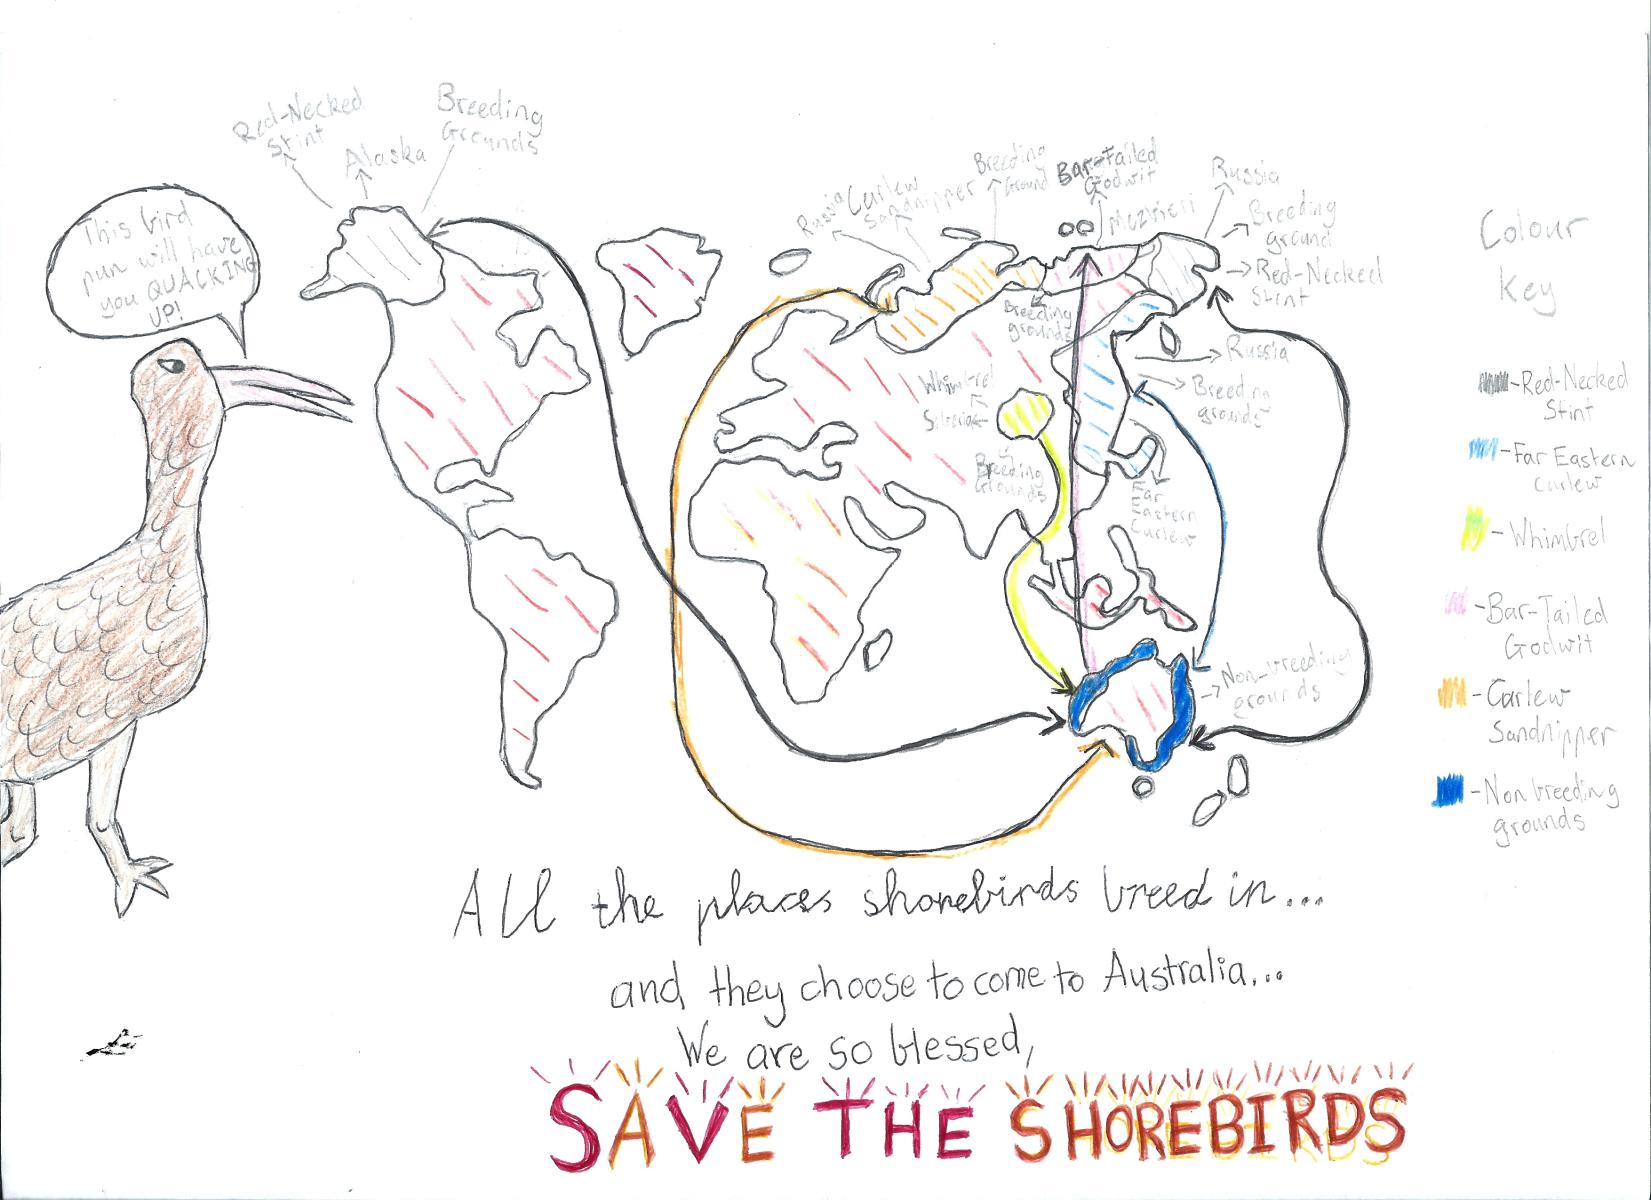 Red-Necked
Stint
Alaska
Breeding
Grounds
This bird
pun will have
you QUACKING
UP!
Russia
Curlew
Sandpipper
Breeding
Ground
Bar-Tailed
Godwit
Russia
Breeding
ground
Red-Necked
Stint
Breeding
grounds
Russia
Breeding
grounds
Whimbrel
Siberia
Breeding
Grounds
Far
Eastern
Curlew
Non-breeding
grounds
Colour
Key
-Red-Necked
Stint
-Far Eastern
Curlew
-Whimbrel
-Bar-Tailed
Godwit
-Curlew
Sandpipper
-Non breeding
grounds
All the places shorebirds breed in...
and they choose to come to Australia...
We are so blessed,
SAVE THE SHOREBIRDS